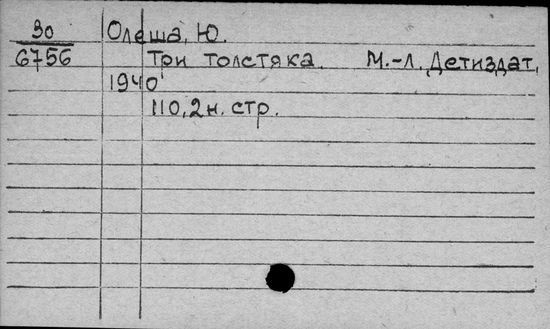 30 Олеша, Ю.
6756 Три толстяка. М.-Л. Детиздат,
1940
110, 2 н. стр.